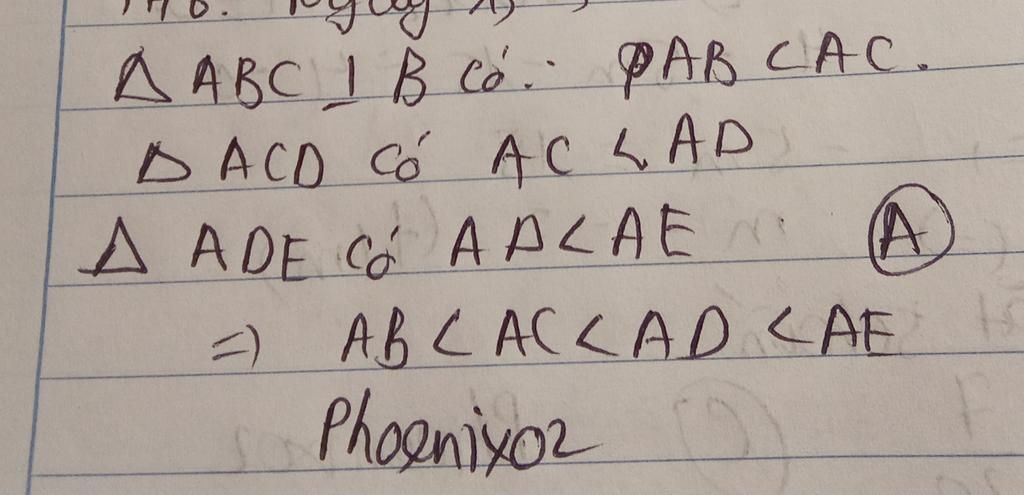 Δ ABC ⊥ B có: AB < AC.
Δ ACD có AC < AD
Δ ADE có AD < AE A
=> AB < AC < AD < AE
Phoenix02